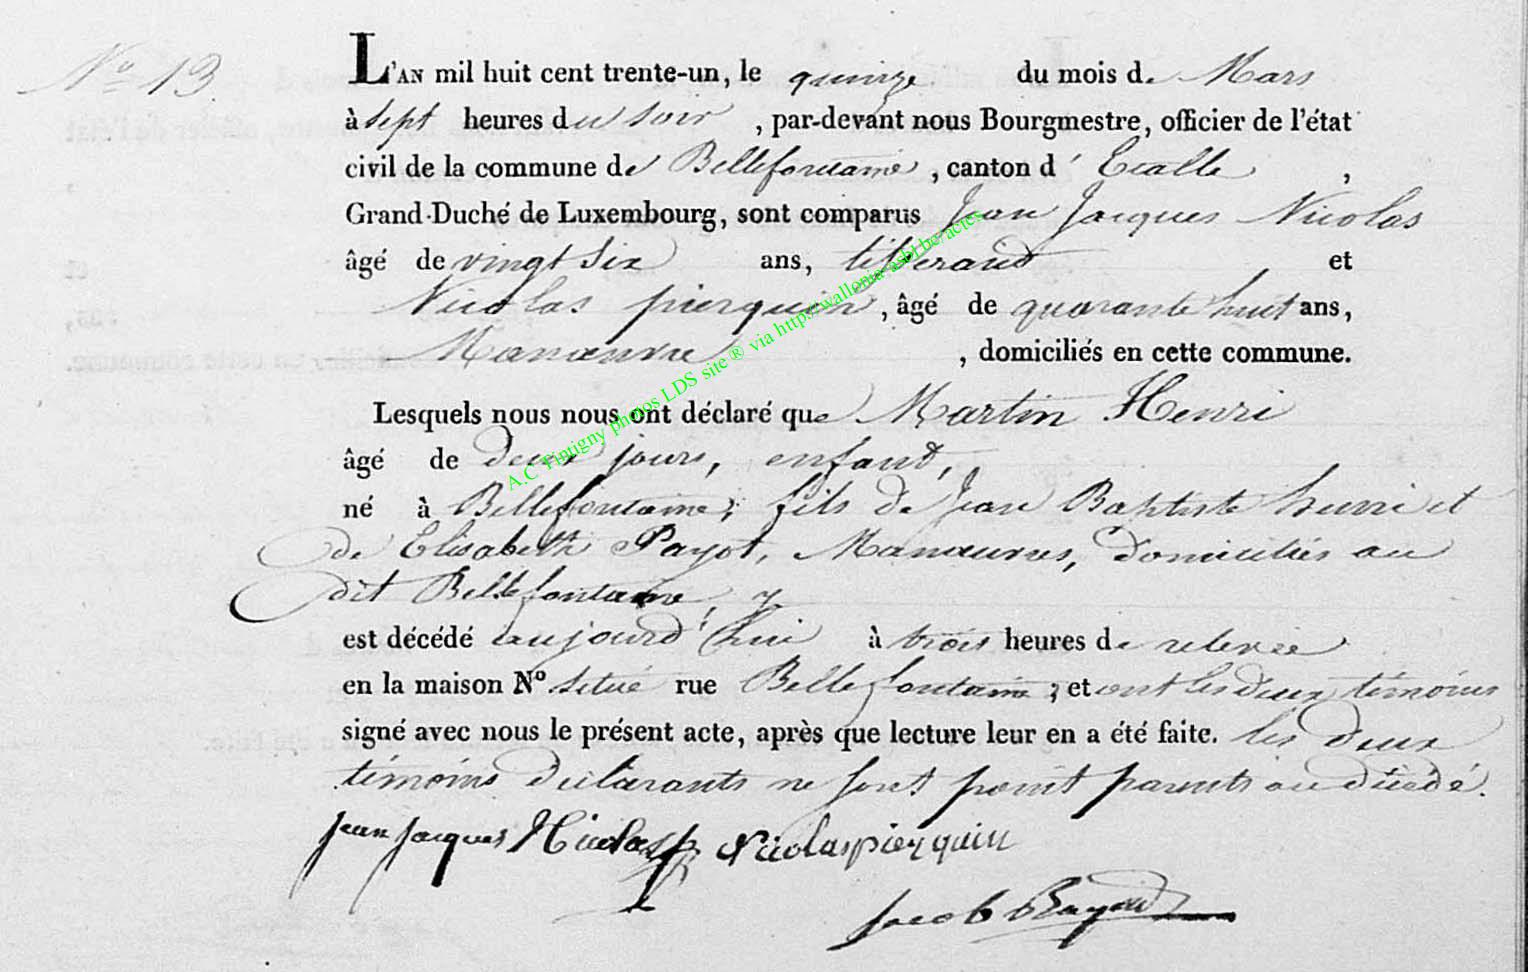 N° 13
L'AN mil huit cent trente-un, le quinze du mois de Mars
à sept heures du soir, par-devant nous Bourgmestre, officier de l'état
civil de la commune de Bellefontaine, canton d'Etalle,
Grand-Duché de Luxembourg, sont comparus Jean Jacques Nicolas
âgé de vingt six ans, tisserand et
Nicolas pierquin, âgé de quarante huit ans,
Manœuvre, domiciliés en cette commune.
Lesquels nous nous ont déclaré que Martin Henri
âgé de deux jours, enfant,
né à Bellefontaine; fils de Jean Baptiste henri et
de Elisabeth Payot, Manœuvres, domiciliés au
dit Bellefontaine,
est décédé aujourd'hui à trois heures de relevée
en la maison N° situé rue Bellefontaine; et ont les deux témoins
signé avec nous le présent acte, après que lecture leur en a été faite. les deux
témoins déclarants ne sont point parents au décédé.
Jean Jacques Nicolas Nicolas pierquin
Jacob
A.C Tintigny photos LDS site ® via http://wallonia-asbl.be/actes